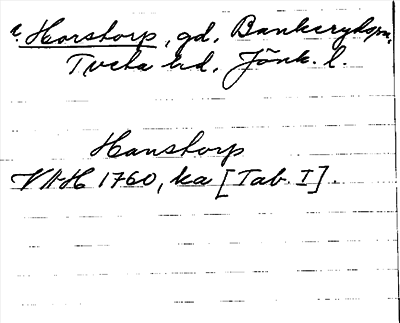 Horstorp, gd. Bankeryds sn,
Tveta hd. Jönk. l.
Hanstorp
VAH 1760, ka [Tab. I].